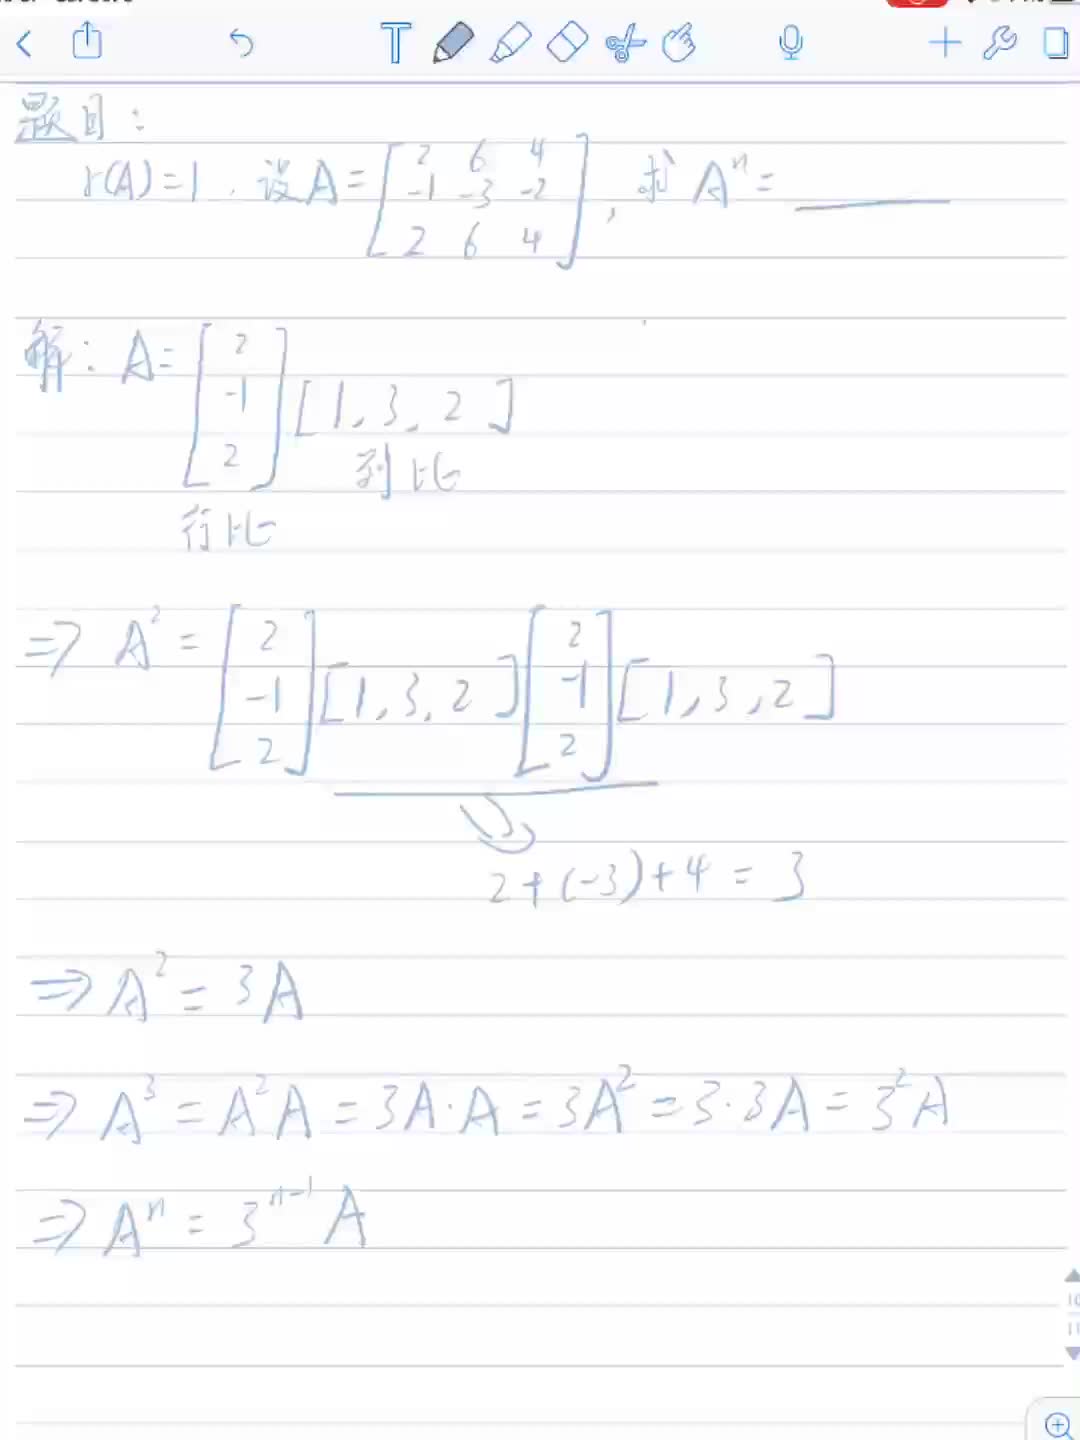 题目:
r(A)=1. 设A=[2 6 4
-1 -3 -2
2 6 4], 求 Aⁿ= ____
解: A=[2
-1
2][1, 3, 2]
列比
行比
⇒ A² = [2
-1
2][1, 3, 2][2
-1
2][1, 3, 2]
2+(-3)+4 = 3
⇒ A² = 3A
⇒ A³ = A²A = 3A·A = 3A² = 3·3A = 3²A
⇒ Aⁿ = 3ⁿ⁻¹A